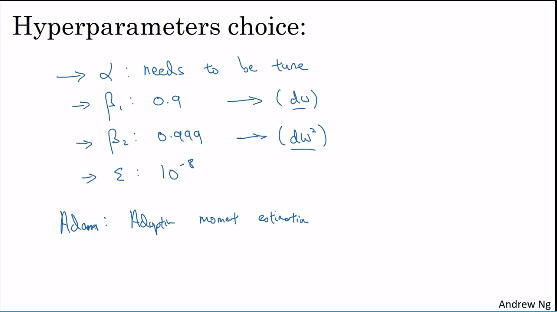 Hyperparameters choice:
→ α : needs to be tune
→ β₁ : 0.9 → (dw)
→ β₂ : 0.999 → (dw²)
→ ε : 10⁻⁸
Adam : Adaptive moment estimation
Andrew Ng